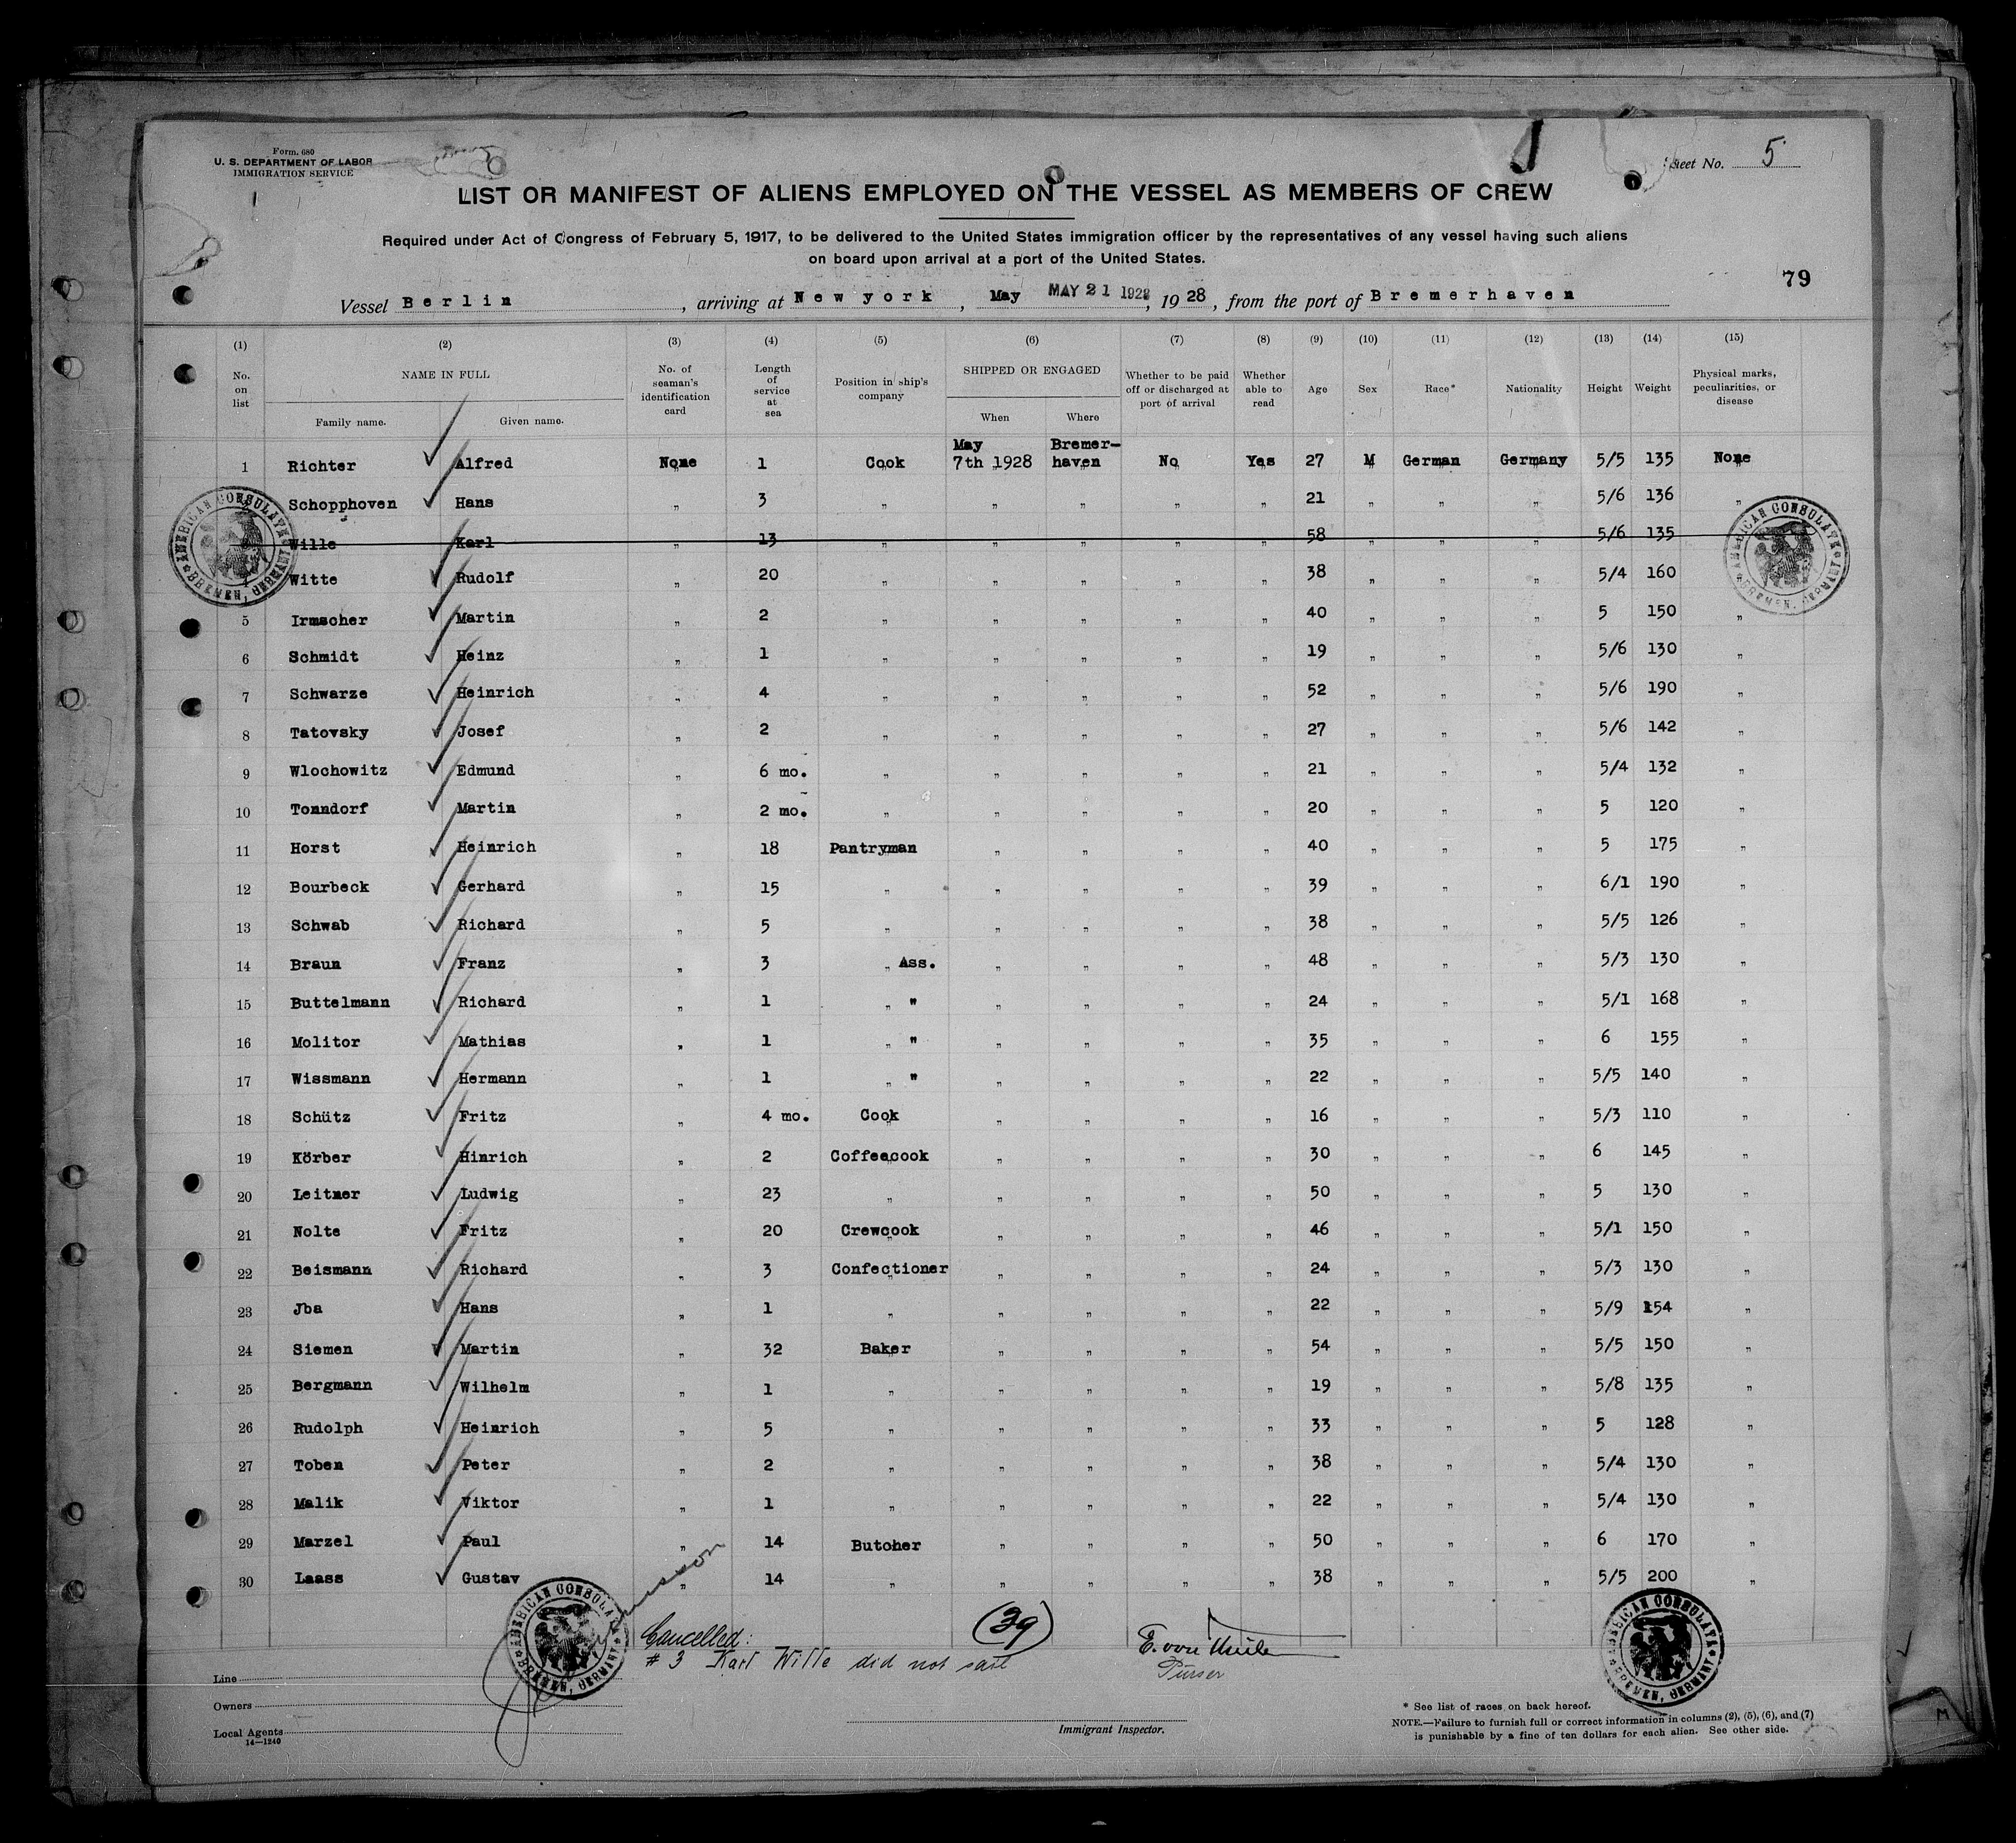 Form. 680
U. S. DEPARTMENT OF LABOR
IMMIGRATION SERVICE
Sheet No. 5
LIST OR MANIFEST OF ALIENS EMPLOYED ON THE VESSEL AS MEMBERS OF CREW
Required under Act of Congress of February 5, 1917, to be delivered to the United States immigration officer by the representatives of any vessel having such aliens
on board upon arrival at a port of the United States.
79
Vessel Berlin, arriving at New york, May MAY 21 1928, 1928, from the port of Bremerhaven
(1) (2) (3) (4) (5) (6) (7) (8) (9) (10) (11) (12) (13) (14) (15)
No. on list NAME IN FULL Family name. Given name. No. of seaman's identification card Length of service at sea Position in ship's company SHIPPED OR ENGAGED When Where Whether to be paid off or discharged at port of arrival Whether able to read Age Sex Race* Nationality Height Weight Physical marks, peculiarities, or disease
1 Richter Alfred None 1 Cook May 7th 1928 Bremer-haven No Yes 27 M German Germany 5/5 135 None
Schopphoven Hans " 3 " " " " " 21 " " " 5/6 136 "
Wille Karl " 13 " " " " " 58 " " " 5/6 135
4 Witte Rudolf " 20 " " " " " 38 " " " 5/4 160
5 Irmscher Martin " 2 " " " " " 40 " " " 5 150 "
6 Schmidt Heinz " 1 " " " " " 19 " " " 5/6 130 "
7 Schwarze Heinrich " 4 " " " " " 52 " " " 5/6 190 "
8 Tatovsky Josef " 2 " " " " " 27 " " " 5/6 142 "
9 Wlochowitz Edmund " 6 mo. " " " " " 21 " " " 5/4 132 "
10 Tonndorf Martin " 2 mo. " " " " " 20 " " " 5 120 "
11 Horst Heinrich " 18 Pantryman " " " " 40 " " " 5 175 "
12 Bourbeck Gerhard " 15 " " " " " 39 " " " 6/1 190 "
13 Schwab Richard " 5 " " " " " 38 " " " 5/5 126 "
14 Braun Franz " 3 " Ass. " " " " 48 " " " 5/3 130 "
15 Buttelmann Richard " 1 " " " " " " 24 " " " 5/1 168 "
16 Molitor Mathias " 1 " " " " " " 35 " " " 6 155 "
17 Wissmann Hermann " 1 " " " " " " 22 " " " 5/5 140 "
18 Schütz Fritz " 4 mo. Cook " " " " 16 " " " 5/3 110 "
19 Körber Hinrich " 2 Coffeecook " " " " 30 " " " 6 145 "
20 Leitner Ludwig " 23 " " " " " 50 " " " 5 130 "
21 Nolte Fritz " 20 Crewcook " " " " 46 " " " 5/1 150 "
22 Beismann Richard " 3 Confectioner " " " " 24 " " " 5/3 130 "
23 Jba Hans " 1 " " " " " 22 " " " 5/9 154 "
24 Siemen Martin " 32 Baker " " " " 54 " " " 5/5 150 "
25 Bergmann Wilhelm " 1 " " " " " 19 " " " 5/8 135 "
26 Rudolph Heinrich " 5 " " " " " 33 " " " 5 128 "
27 Toben Peter " 2 " " " " " 38 " " " 5/4 130 "
28 Malik Viktor " 1 " " " " " 22 " " " 5/4 130 "
29 Marzel Paul " 14 Butcher " " " " 50 " " " 6 170 "
30 Laass Gustav " 14 " " " " " 38 " " " 5/5 200 "
AMERICAN CONSULATE BREMEN, GERMANY
AMERICAN CONSULATE BREMEN, GERMANY
AMERICAN CONSULATE BREMEN, GERMANY
AMERICAN CONSULATE BREMEN, GERMANY
Cancelled:
# 3 Karl Wille did not sail
(39)
E. von
Purser
Line
Owners
Local Agents
14—1240
Immigrant Inspector.
* See list of races on back hereof.
NOTE.—Failure to furnish full or correct information in columns (2), (5), (6), and (7)
is punishable by a fine of ten dollars for each alien. See other side.
M